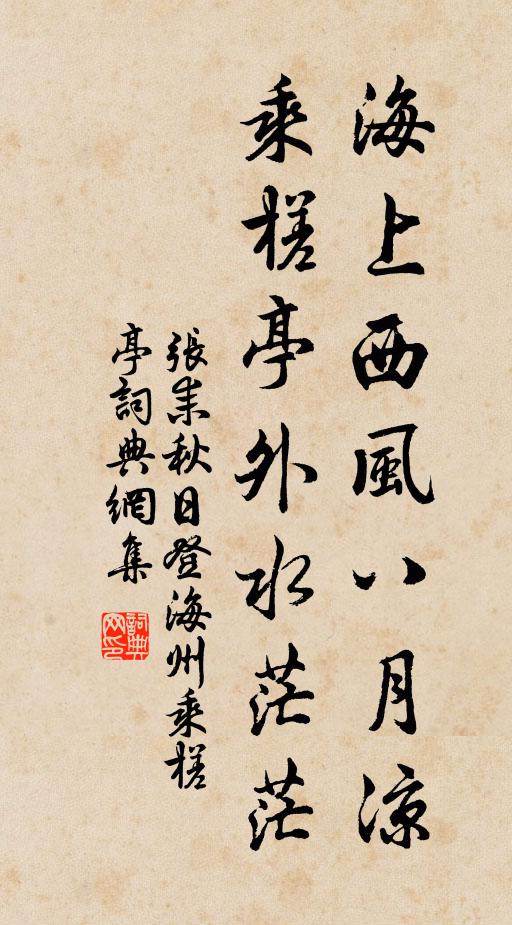 海上西風八月涼
乘槎亭外水茫茫
張耒秋日登海州乘槎
亭詞典網集
詞典
网印